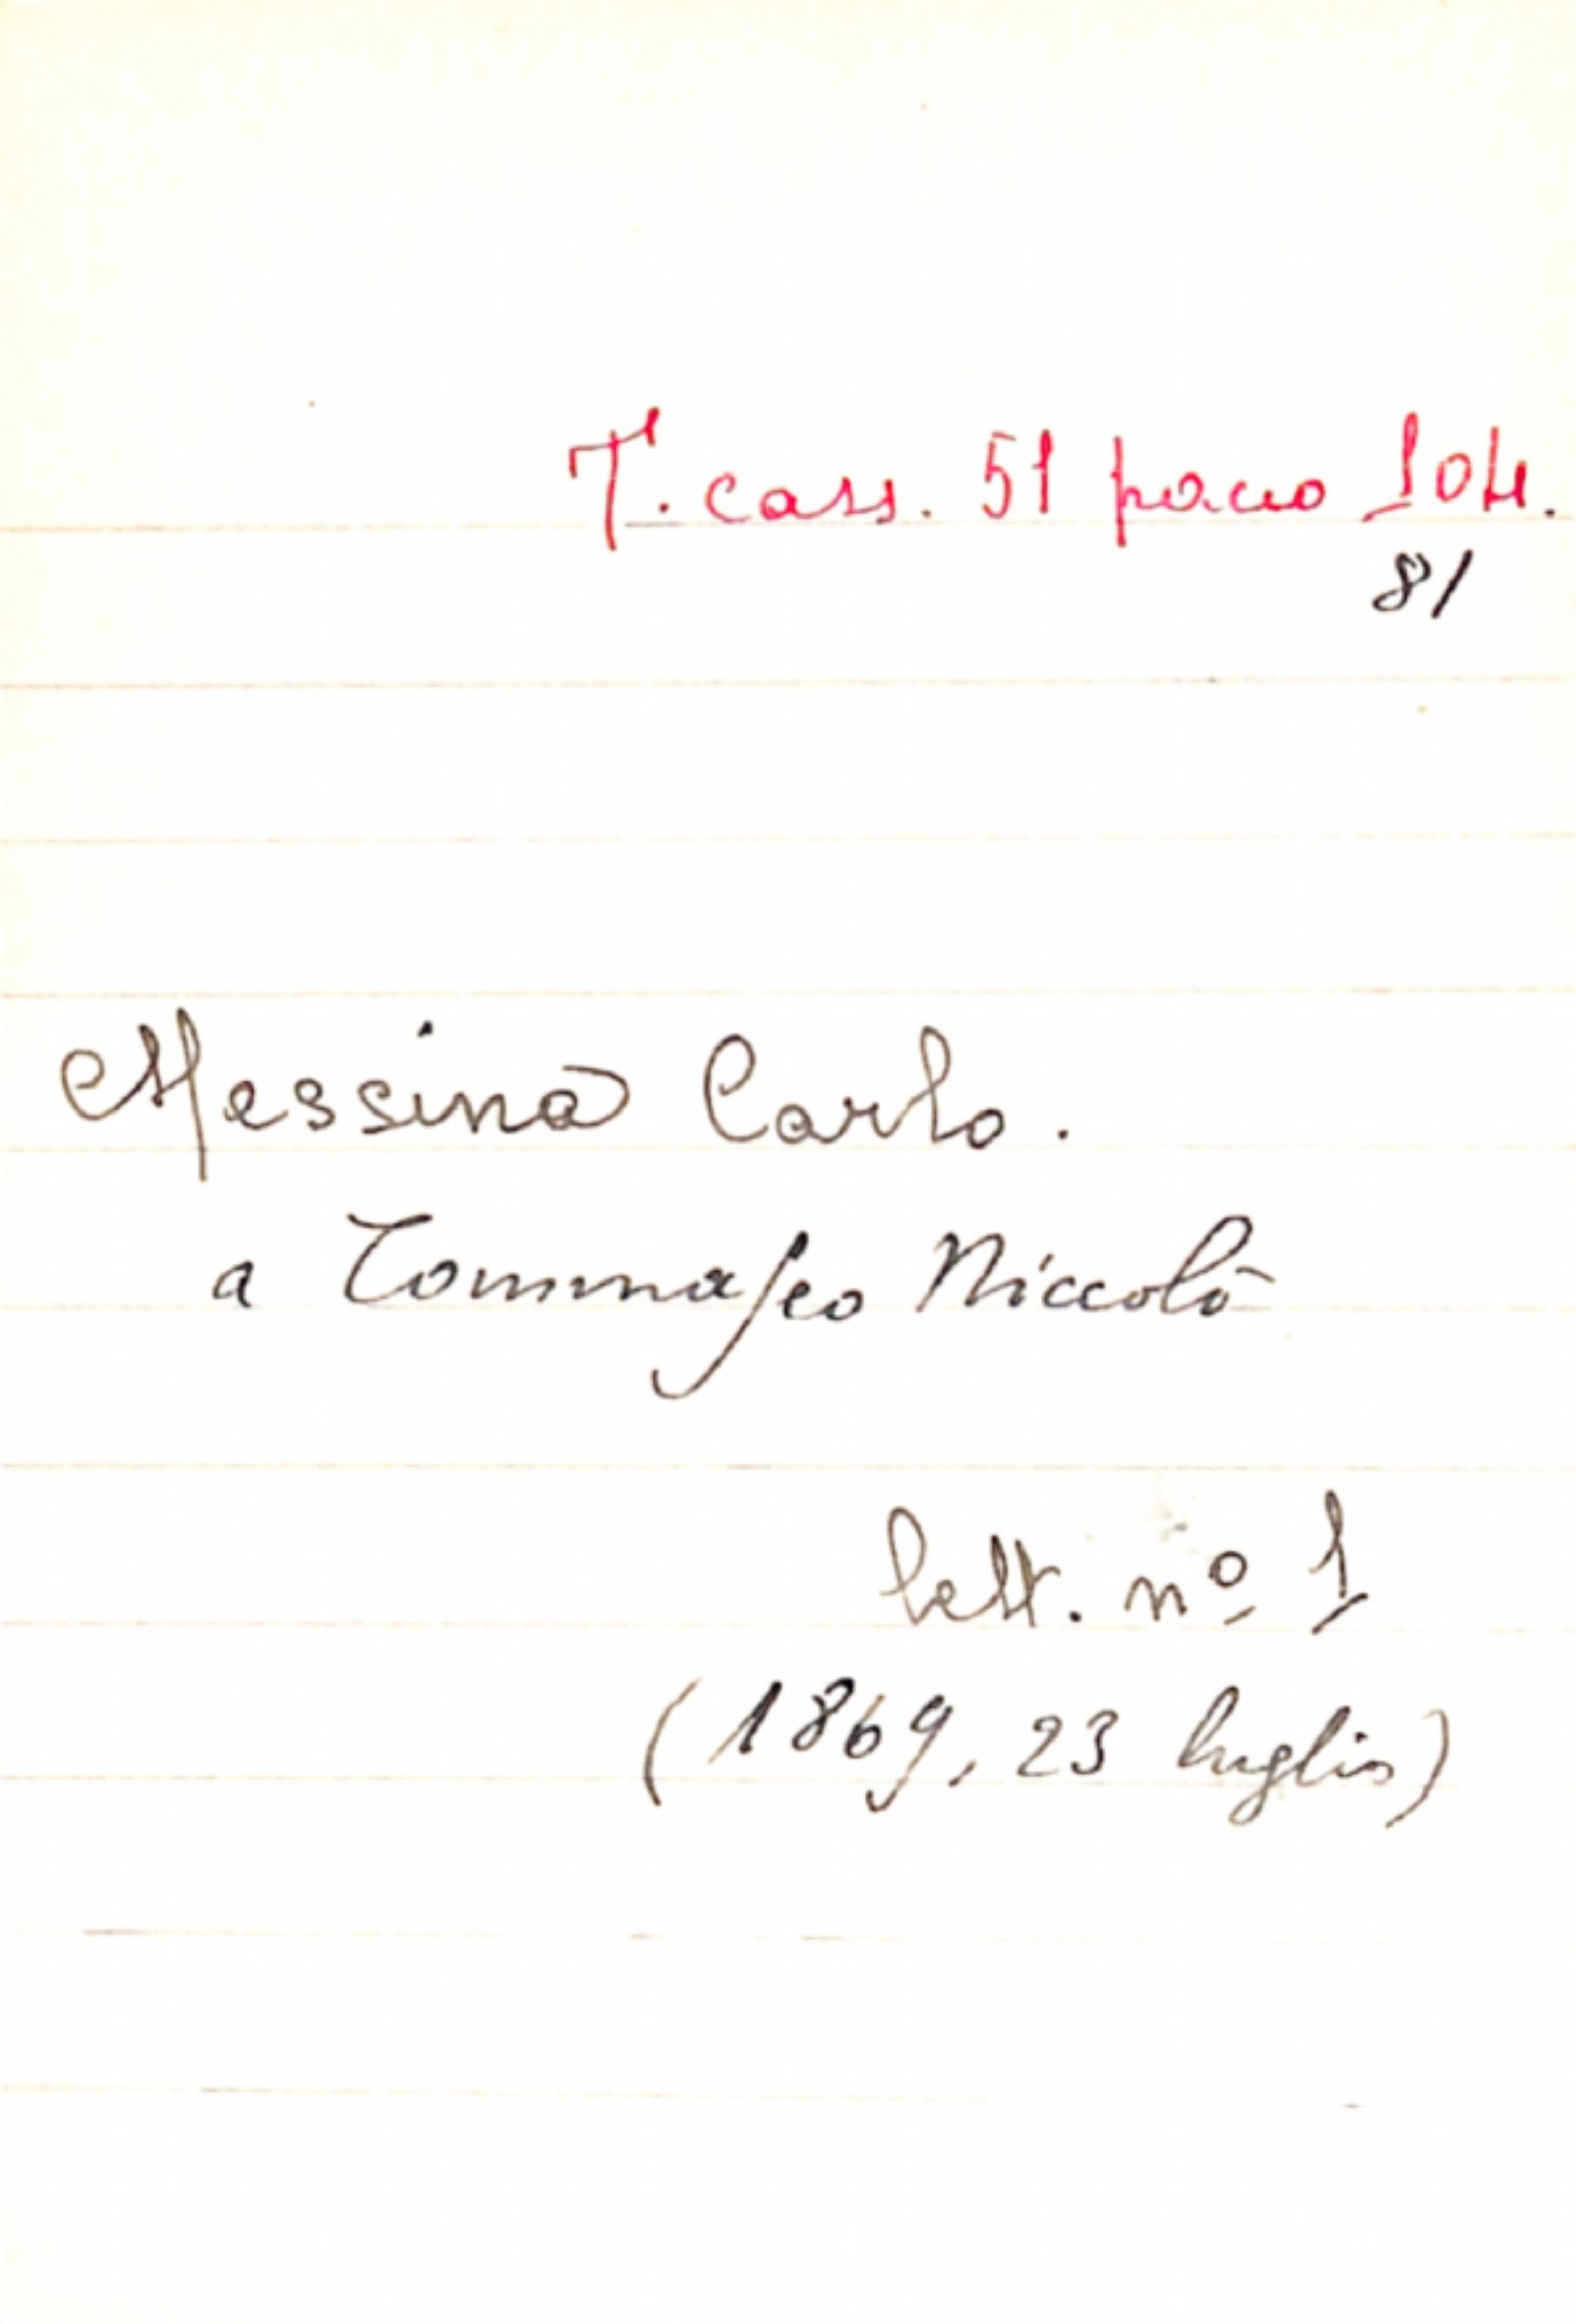 T. cass. 51 pacco 104.
81
Messina Carlo.
a Tommaseo Niccolò
lett. nº 1
(1869, 23 luglio)